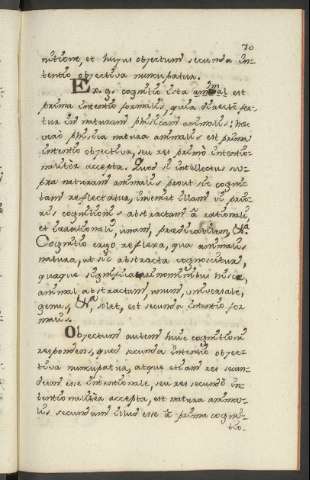 70
nitione, et hujus objectum secunda in-
tentio objectiva nuncupatur.
Ex. g. cognitio ista animal est
prima intentio formalis, quia directè fer-
tur in naturam physicam animalis: hæc
verò physica natura animalis est prima
intentio objectiva, seu res primò intentio-
naliter accepta. Quod si intellectus su-
pra naturam animalis prout sic cognit-
tam reflectatur, inveniet illam vi prio-
ris cognitionis abstractam à rationali,
et irrationali, unam, prædicabilem, &c.
Cognitio ergo reflexa, qua animalis
natura, ut sic abstracta cognoscitur,
quæque significatur nominibus
animal abstractum, unum, universale,
genus, &c. solet, est secunda intentio for-
malis.
Objectum autem huic cognitioni
respondens, quod secunda intentio objec-
tiva nuncupatur, atque etiam res secun-
dum esse intentionale, seu res secundò in-
tentionaliter accepta, est natura anima-
lis secundum illud esse prima cogni-
tio.